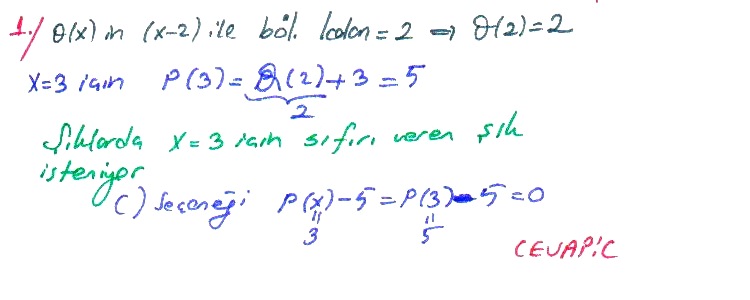 1./ Q(x) in (x-2) ile böl. kalan = 2 ⇒ Q(2)=2
x=3 için P(3) = Q(2)+3 = 5
2
Şıklarda x=3 için sıfırı veren şık
isteniyor
C) seçeneği P(x)-5 = P(3)-5 =0
3 5
CEVAP:C